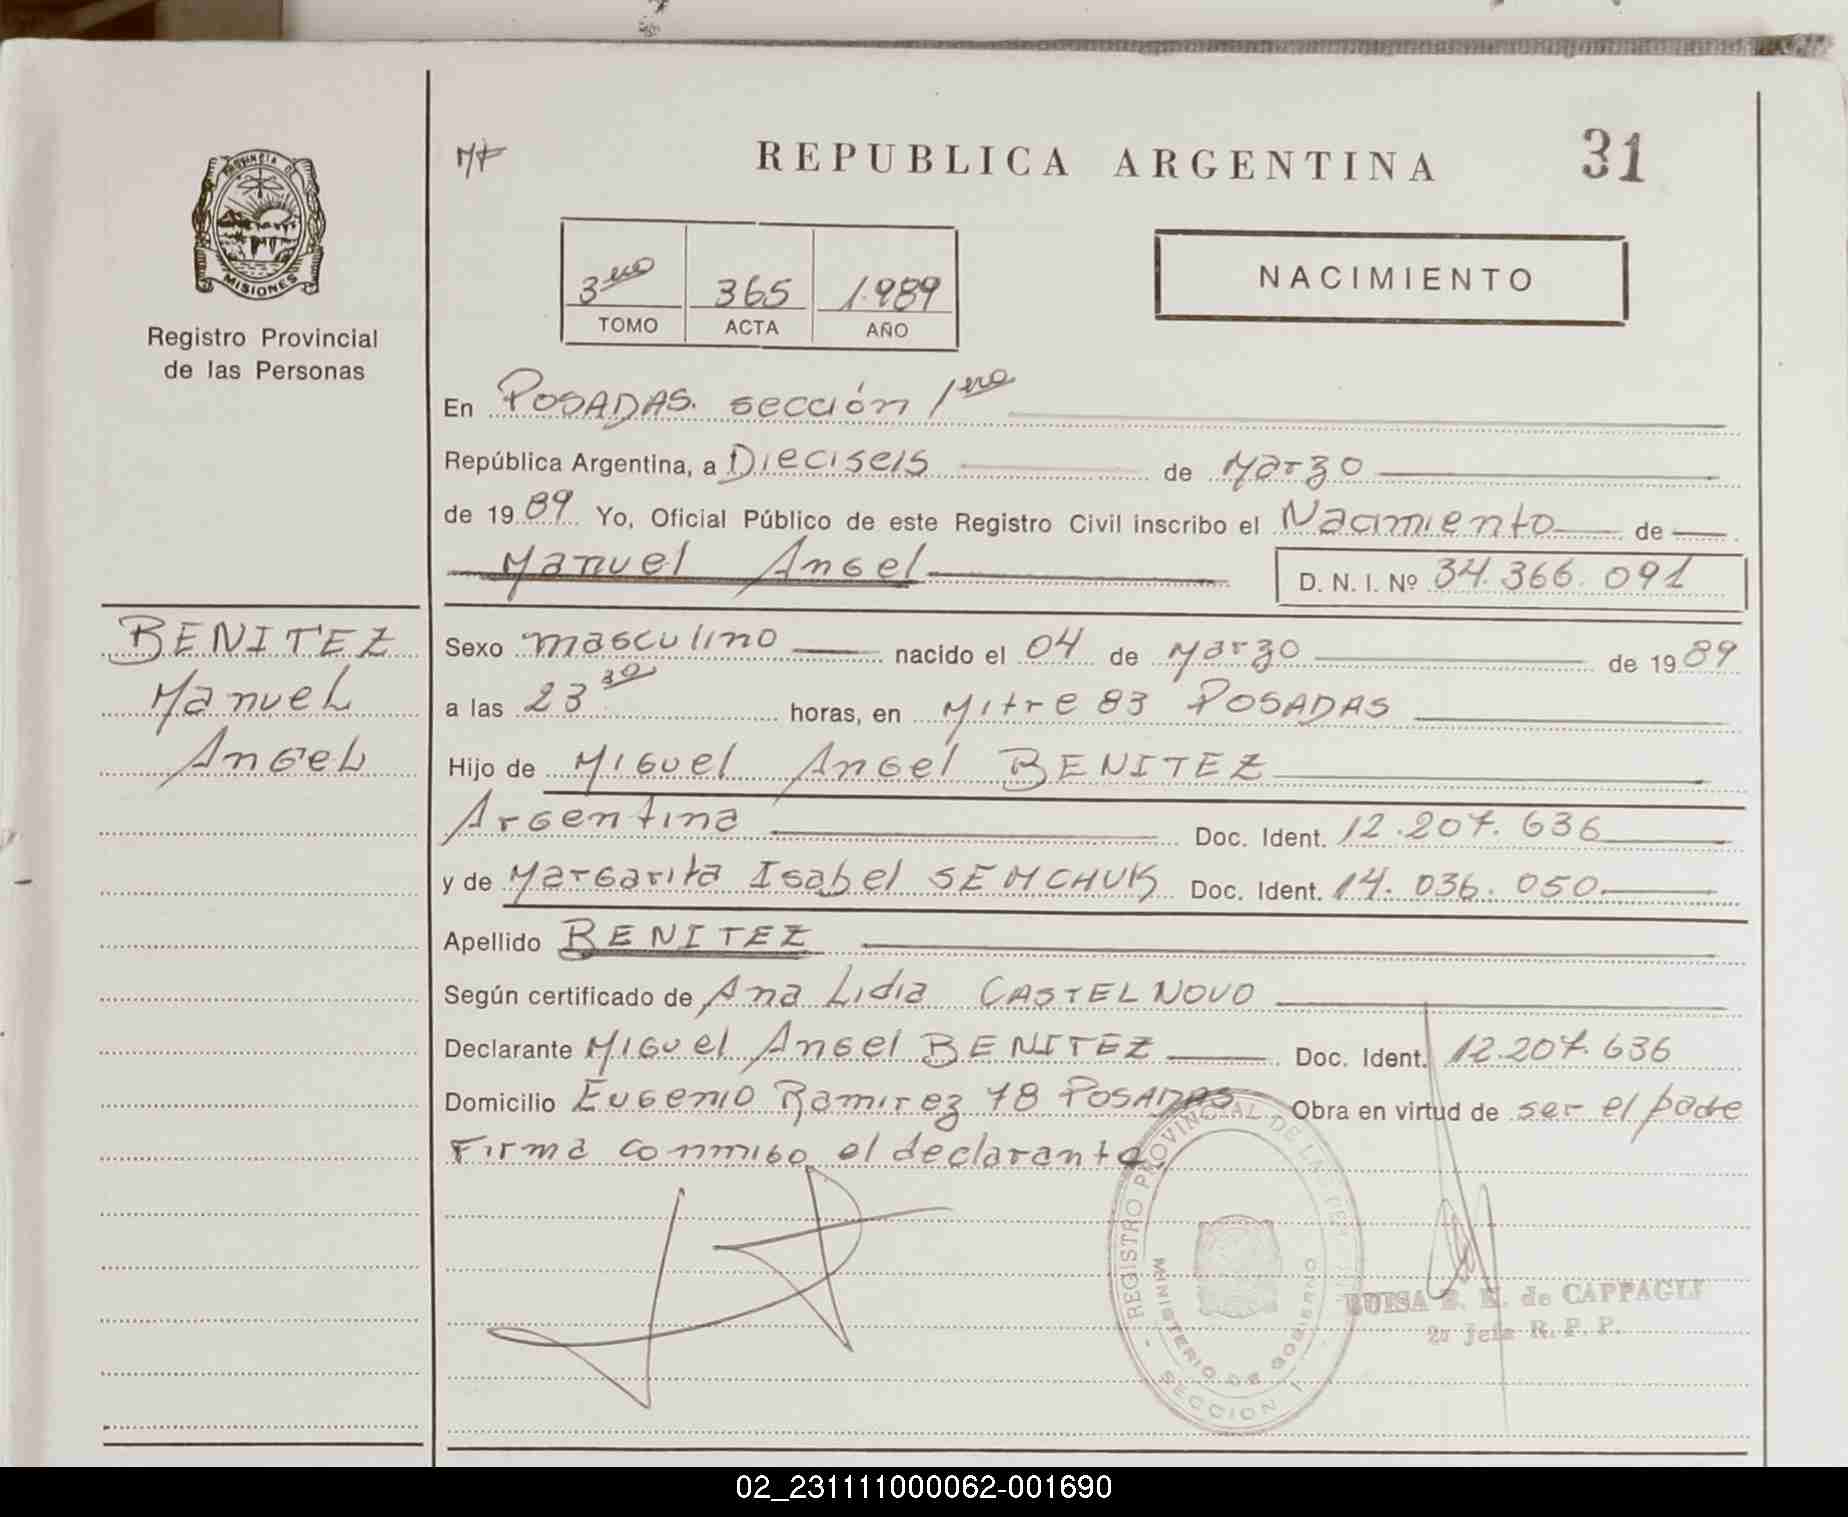 PROVINCIA DE
MISIONES
Registro Provincial
de las Personas
REPUBLICA ARGENTINA
31
3ero 365 1.989
TOMO ACTA AÑO
NACIMIENTO
En POSADAS. sección 1era
República Argentina, a Dieciseis de Marzo
de 1989 Yo, Oficial Público de este Registro Civil inscribo el Nacimiento de
Manuel Angel D. N. I. Nº 34.366.091
BENITEZ
Manuel
Angel
Sexo masculino nacido el 04 de Marzo de 1989
a las 23 30 horas, en Mitre 83 POSADAS
Hijo de Miguel Angel BENITEZ
Argentina Doc. Ident. 12.207.636
y de Margarita Isabel SEMCHUK Doc. Ident. 14.036.050
Apellido BENITEZ
Según certificado de Ana Lidia CASTELNOVO
Declarante Miguel Angel BENITEZ Doc. Ident. 12.207.636
Domicilio Eugenio Ramirez 78 POSADAS Obra en virtud de ser el padre
Firma conmigo el declarante.
REGISTRO PROVINCIAL DE LAS
MINISTERIO DE GOBIERNO
SECCION 1
LUISA E. K. de CAPPAGLI
2º Jefe R. P. P.
02_231111000062-001690